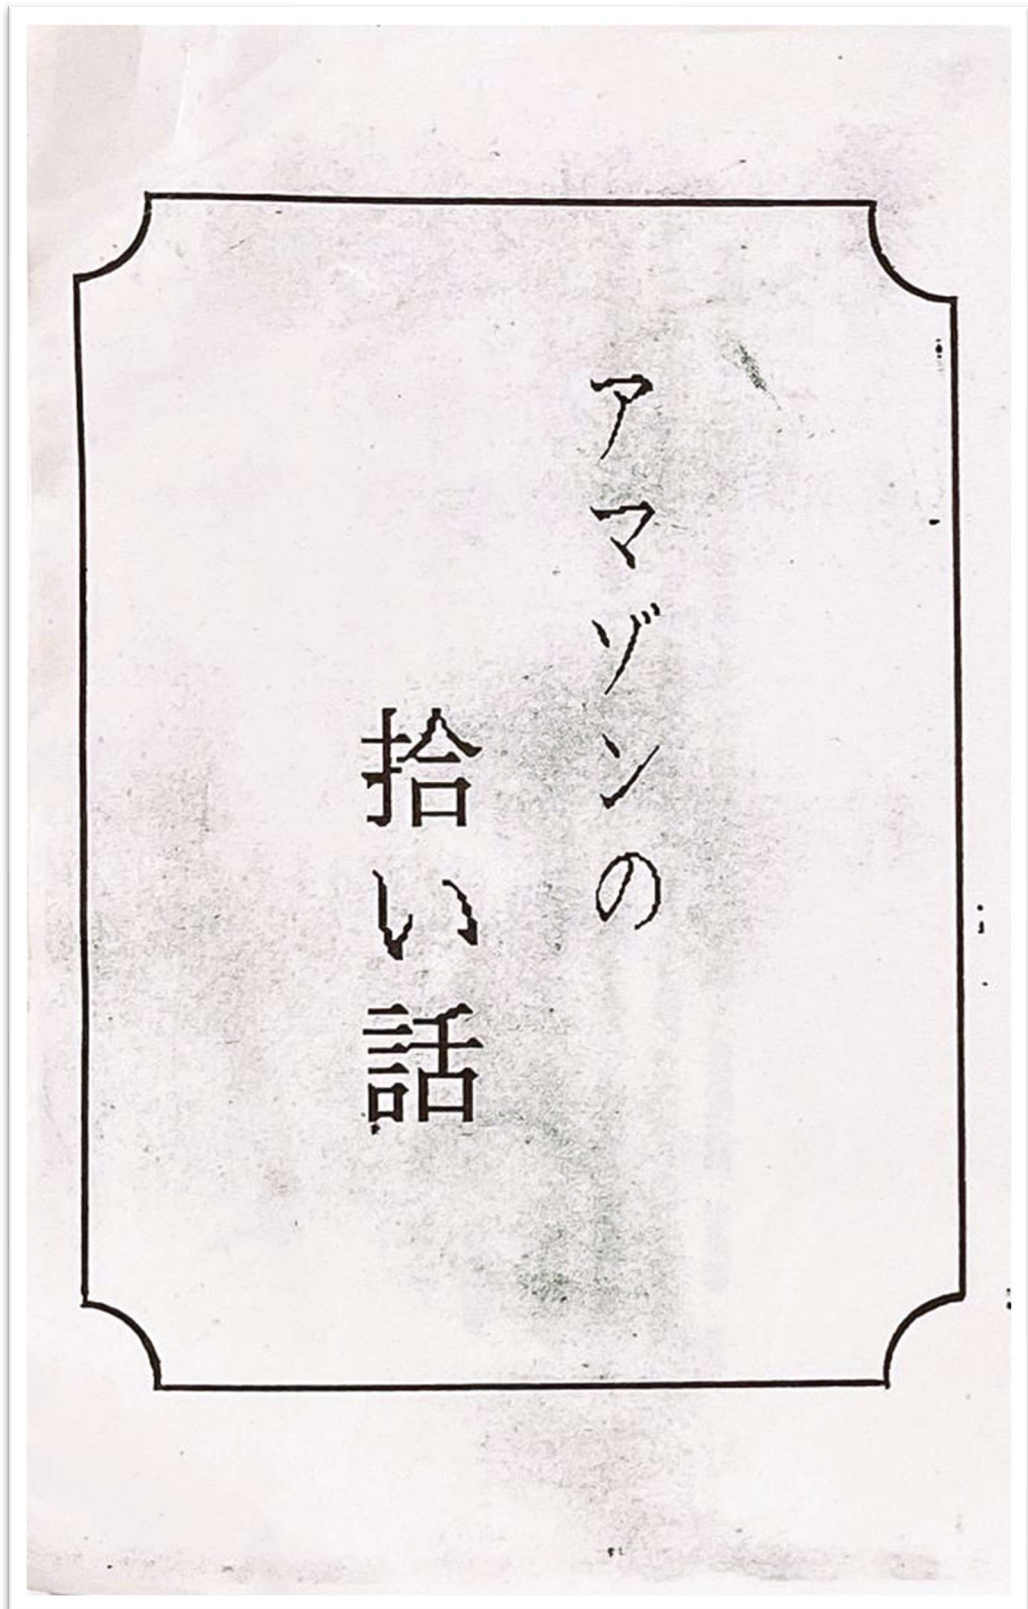 アマゾンの
拾い話